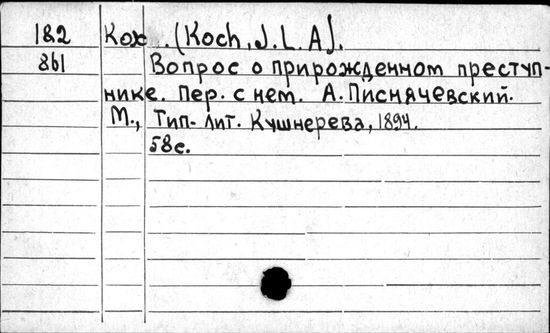 182 Кох . . (Koch, J. L. A).
861 Вопрос о прирожденном преступ-
нике. Пер. с нем. А. Писнячевский.
М., Тип. лит. Кушнерева, 1894.
58 с.